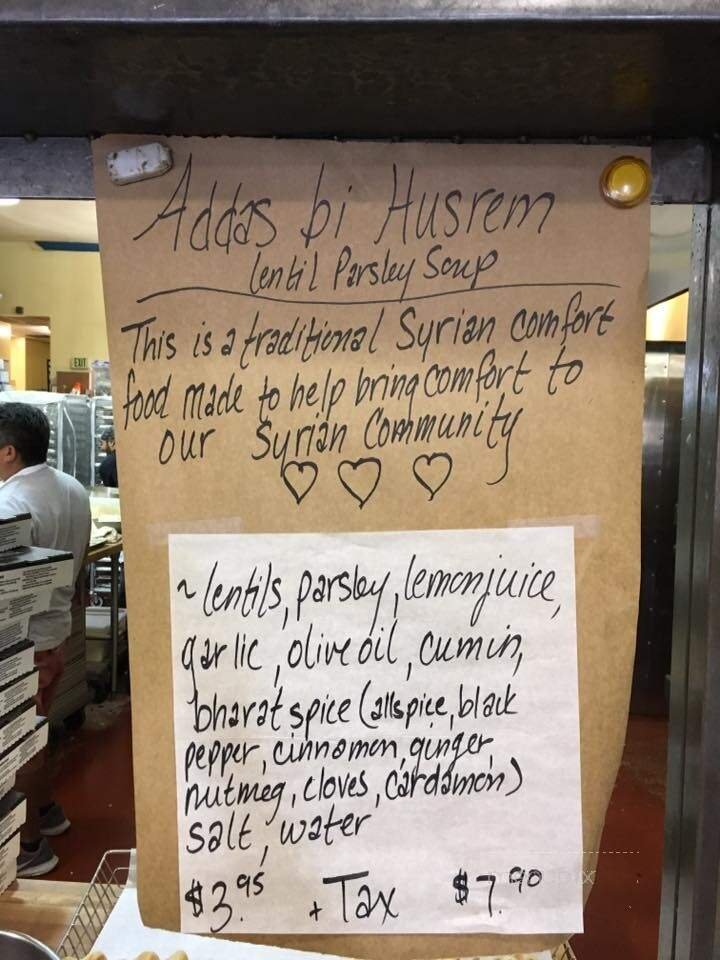 Addas bi Husrem
lentil Parsley Soup
This is a traditional Syrian comfort
food made to help bring comfort to
our Syrian Community
~ lentils, parsley, lemon juice,
garlic, olive oil, cumin,
bharat spice (allspice, black
pepper, cinnamon, ginger
nutmeg, cloves, cardamon)
salt, water
$3.95 + Tax $7.90
EXIT